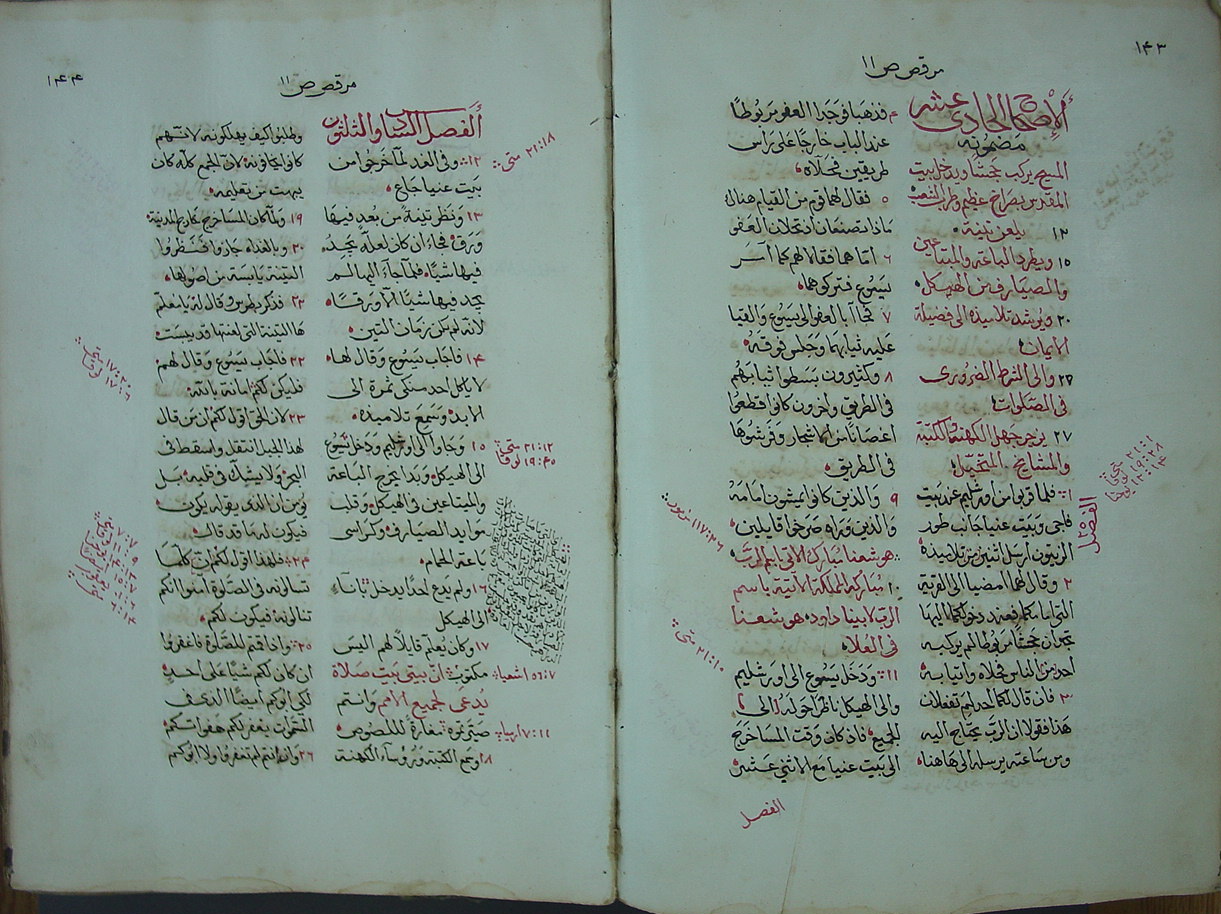 ١٤٣
مرقص ص ١١
الإصحاح الحادي عشر
مضمونه
المسيح يركب جحشًا ويدخل بيت
المقدس بصراخ عظيم وطرب الشعب
١٢ يلعن تينة
١٥ ويطرد الباعة والمبتاعين
والصيارف من الهيكل
٢٠ ويرشد تلاميذه الى فضيلة
الايمان
٢٤ والى الشرط الضروري
في الصلوات
٢٧ يزجر جهل الكهنة والكتبة
والمشايخ
١ فلما قربوا من اورشليم عند بيت
فاجي وبيت عنيا جانب طور
الزيتون ارسل اثنين من تلاميذه
٢ وقال لهما امضيا الى القرية
التي امامكما فعند دخولكما اليها
تجدان جحشًا مربوطًا لم يركبه
احد من الناس فحلاه واتيا به
٣ فان قال لكما احد لم تفعلان
هذا فقولا ان الرب يحتاج اليه
ومن ساعته يرسله الى هاهنا
٤ فذهبا فوجدا العفو مربوطًا
عند الباب خارجًا على راس
طريقين فحلاه
٥ فقال لهما قوم من القيام هناك
ماذا تصنعان اذ تحلان العفو
٦ اما هما فقالا لهم كما امر
يسوع فتركوهما
٧ فجاآ بالعفو الى يسوع والقيا
عليه ثيابهما وجلس فوقه
٨ وكثيرون بسطوا ثيابهم
في الطريق واخرون كانوا قطعوا
اغصانًا من الاشجار وفرشوها
في الطريق
٩ والذين كانوا يمشون امامه
والذين وراه صرخوا قايلين
هوشعنا مبارك الاتي باسم الرب
١٠ مباركة المملكة الاتية باسم
الرب لابينا داود هوشعنا
في العلا
١١ ودخل يسوع الى اورشليم
والى الهيكل ناظرًا حوله الى
الجميع فاذ كان وقت المسا خرج
الى بيت عنيا مع الاثني عشر
الفصل
٢١:١ متى
١٩:٢٨ لوقا
١٢:١٤ يوحنا
الفصل
٣٥
١١٧:٢٦ زبور
٢١:١٠ متى
١٤٤
مرقص ص ١١
الفصل السادس والثلثون
١٢ وفي الغد لما خرجوا من
بيت عنيا جاع
١٣ ونظر تينة من بعد فيها
ورق فجاء ان كان لعله يجد
فيها شيًا فلما جاء اليها لم
يجد فيها شيًا الا ورقًا
لانه لم يكن زمان التين
١٤ فاجاب يسوع وقال لها
لا ياكل احد منكي ثمرة الى
الابد وسمع تلاميذه
١٥ وجاوا الى اورشليم ودخل يسوع
الى الهيكل وبدا يخرج الباعة
والمبتاعين في الهيكل وقلب
موايد الصيارف وكراسي
باعة الحمام
١٦ ولم يدع احدًا يدخل باناء
الى الهيكل
١٧ وكان يعلم قايلًا لهم اليس
مكتوب ان بيتي بيت صلاة
يدعى لجميع الامم وانتم
صيرتموه مغارة للصوص
١٨ وسمع الكتبة وروسآء الكهنة
٢١:١٨ متى
٢١:١٢ متى
١٩:٤٥ لوقا
٥٦:٧ اشعيا
٧:١١ ارميا
وطلبوا كيف يهلكونه لانهم
كانوا يخافونه لان الجمع كله كان
يبهت من تعليمه
١٩ ولما كان المسا خرج خارج المدينة
٢٠ وبالغداه جازوا فنظروا
التينة يابسة من اصولها
٢١ فذكر بطرس وقال له يا معلم
ها التينة التي لعنتها قد يبست
٢٢ فاجاب يسوع وقال لهم
فليكن لكم امانة بالله
٢٣ لان الحق اقول لكم ان من قال
لهذا الجبل انتقل واسقط في
البحر ولا يشك في قلبه بل
يومن ان الذي يقوله يكون
فيكون له ما قد قال
٢٤ فلهذا اقول لكم ان كلما
تسالونه في الصلوة آمنوا انكم
تنالونه فيكون لكم
٢٥ واذا قمتم للصلوة فاغفروا
ان كان لكم شيًا على احد
لكي ابوكم ايضًا الذي في
السموات يغفر لكم هفواتكم
٢٦ وان انتم لم تغفروا ولا ابوكم
١٧:٢٠ متى
١٧:٦ لوقا
٧:٧ متى